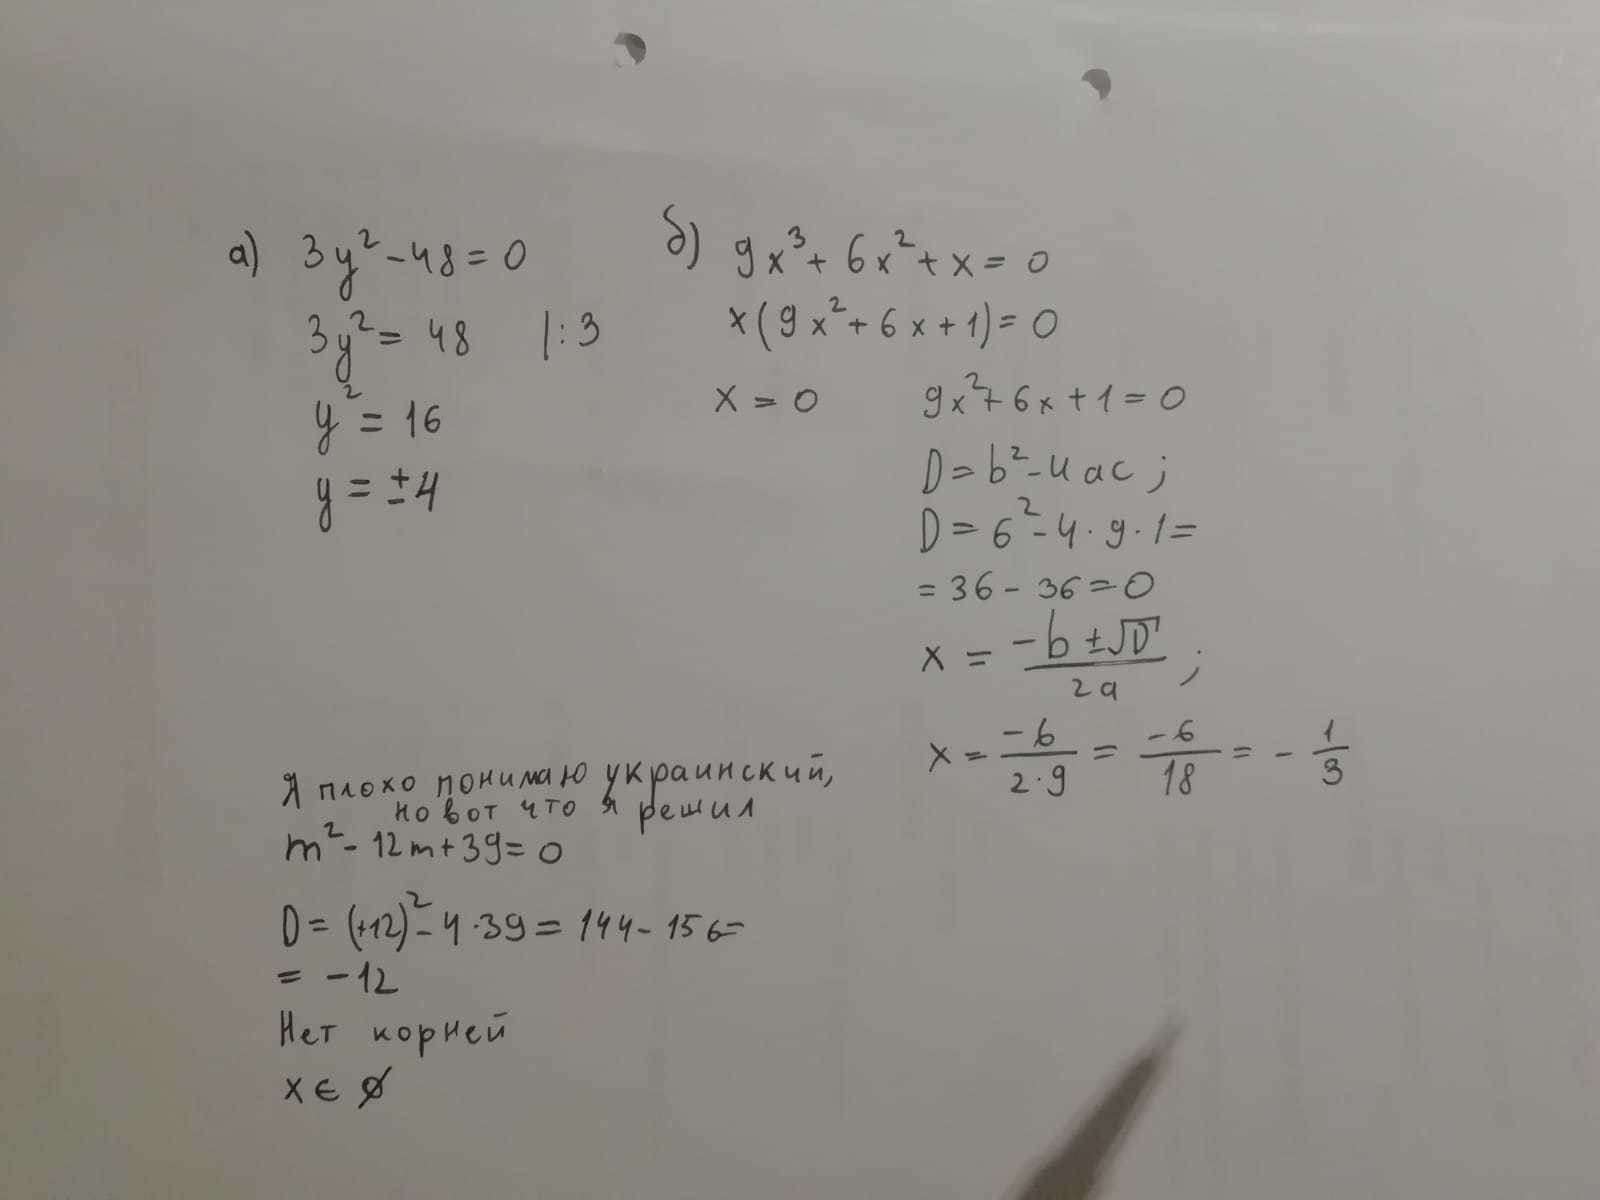 а) 3y² - 48 = 0
3y² = 48 |:3
y² = 16
y = ±4
б) 9x³ + 6x² + x = 0
x(9x² + 6x + 1) = 0
x = 0 9x² + 6x + 1 = 0
D = b² - 4ac;
D = 6² - 4·9·1 =
= 36 - 36 = 0
x = (-b ± √D)/(2a);
x = -6/(2·9) = -6/18 = -1/3
Я плохо понимаю украинский,
но вот что я решил
m² - 12m + 39 = 0
D = (+12)² - 4·39 = 144 - 156 =
= -12
Нет корней
x ∈ ∅